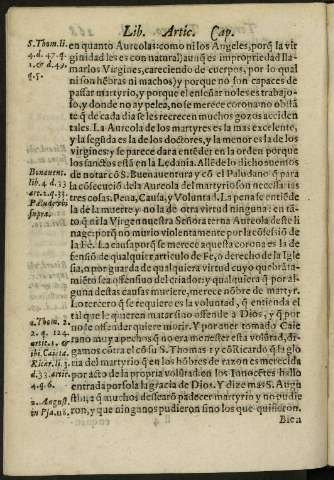 Lib. Artic. Cap.
S. Thom. li.
4. d. 47. q.
1. & d. 49.
q. 5.
en quanto Aureolas: como ni los Angeles, porq̃ la vir
ginidad les es con natural) aunq̃ es impropriedad lla-
marlos Virgines, careciendo de cuerpos, por lo qual
ni son hẽbras ni machos) y porque no son capaces de
passar martyrio, y porque el enseñar no les es trabajo-
so, y donde no ay pelea, no se merece corona: no obstã
te q̃ de cada vno dellos se les recrecen muchos gozos acciden
tales. La Aureola de los martyres es la mas excelente,
y la segũda es la de los doctores, y la menor es la de los
virgines: y se parece dara entẽder en la orden porque
los sanctos estã en la Ledania. Allẽde lo dicho auemos
Bonauent.
lib. 4. d. 33
art. 2. q. 3.
Paludanus
supra.
de notar cõ S. Buenauentura y cõ el Paludano q̃ para
la cõsecuciõ dela Aureola del martyrio son necessarias
tres cosas. Pena, Causa, y Voluntad. La pena se entiẽde
la de la muerte y no la de otra virtud ninguna: en tã-
to q̃ ni la Virgen nuestra Señora terna Aureola deste li
nage: porq̃ no murio violentamente por la cõfessiõ de
la Fè. La causa porq̃ se merece aquesta corona es la de
fensiõ de qualquier articulo de Fè, ò derecho de la Igle
sia, o por guarda de qualquiera virtud cuyo quebrãta-
miẽto sea offensiuo del criador: y qualquiera q̃ por al-
guna destas causas muriere, merece nõbre de martyr.
Lo tercero q̃ se requiere es la voluntad, q̃ entienda el
tal que le quieren matar sino offende a Dios, y q̃ por
2. Thom. 2.
2. q. 124.
artic. 1. &
ibi Caieta.
Ricar. li. 3
d. 33. artic.
4. q. 6.
no le offender quiere morir. Y por auer tomado Caie
tano muy a pechos q̃ no era menester esta volũtad, di-
gamos cõtra el cõ su S. Thomas: y cõ Ricardo q̃ la glo
ria del martyrio q̃ en los hõbres de razon es merecida
por acto de la propria volũtad en los Innocẽtes hallo
entrada por sola la gracia de Dios. Y dize mas S. Augu
2. August.
in Psa. 118.
stin: 2 q̃ muchos dessearõ padecer martyrio y no pudie
ron, y que ningunos pudieron sino los que quisieron.
Bien